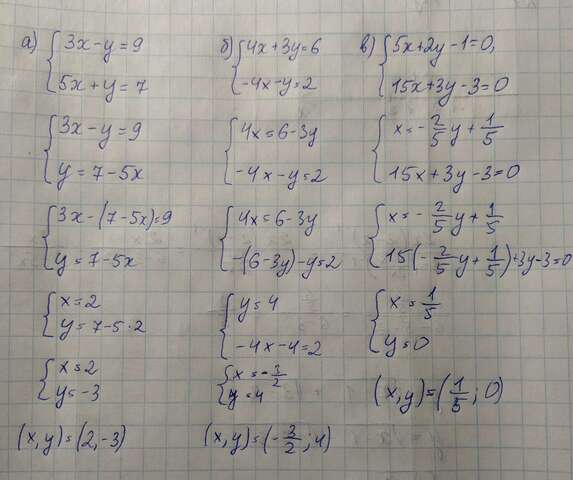 а) { 3x-y=9
5x+y=7
{ 3x-y=9
y=7-5x
{ 3x-(7-5x)=9
y=7-5x
{ x=2
y=7-5·2
{ x=2
y=-3
(x,y)=(2,-3)
б) { 4x+3y=6
-4x-y=2
{ 4x=6-3y
-4x-y=2
{ 4x=6-3y
-(6-3y)-y=2
{ y=4
-4x-4=2
{ x=-3/2
y=4
(x,y)=(-3/2;4)
в) { 5x+2y-1=0,
15x+3y-3=0
{ x=-2/5y+1/5
15x+3y-3=0
{ x=-2/5y+1/5
15(-2/5y+1/5)+3y-3=0
{ x=1/5
y=0
(x,y)=(1/5;0)